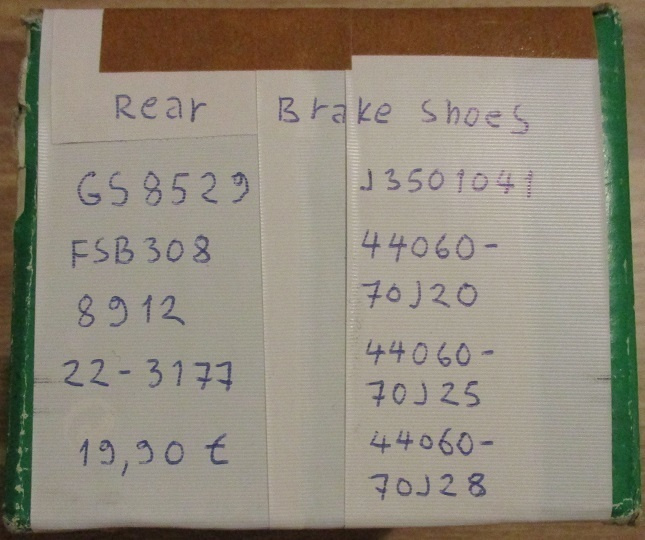 Rear Brake Shoes
GS8529
FSB308
8912
22-3177
19,90 €
J3501041
44060-
70J20
44060-
70J25
44060-
70J28